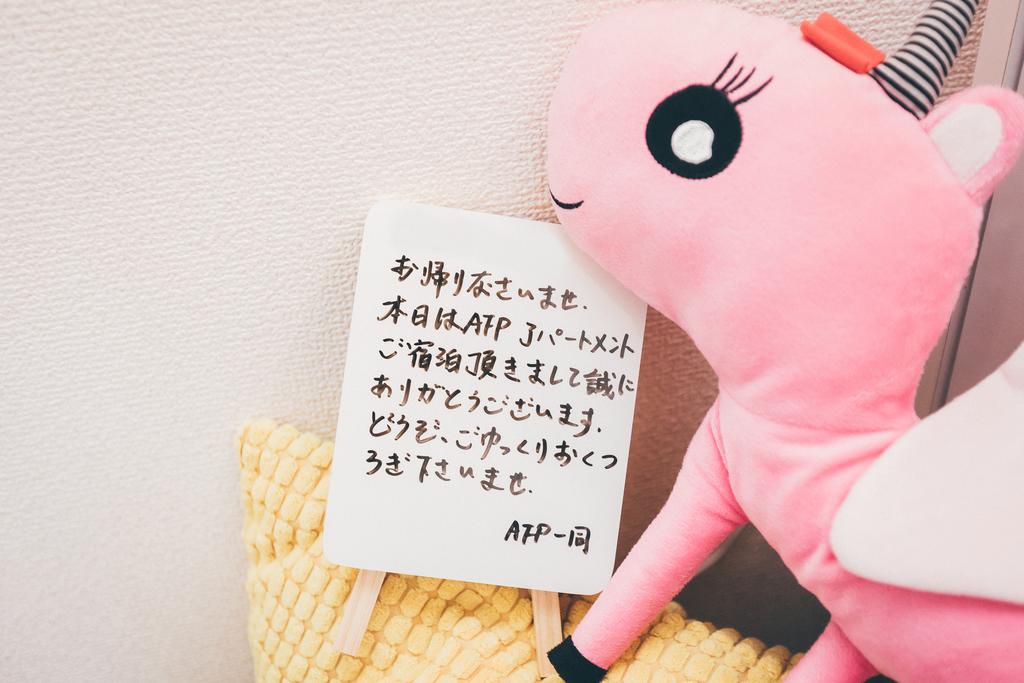 お帰りなさいませ.
本日はATPアパートメント
ご宿泊頂きまして誠に
ありがとうございます.
どうぞ、ごゆっくりおくつ
ろぎ下さいませ.
ATP一同